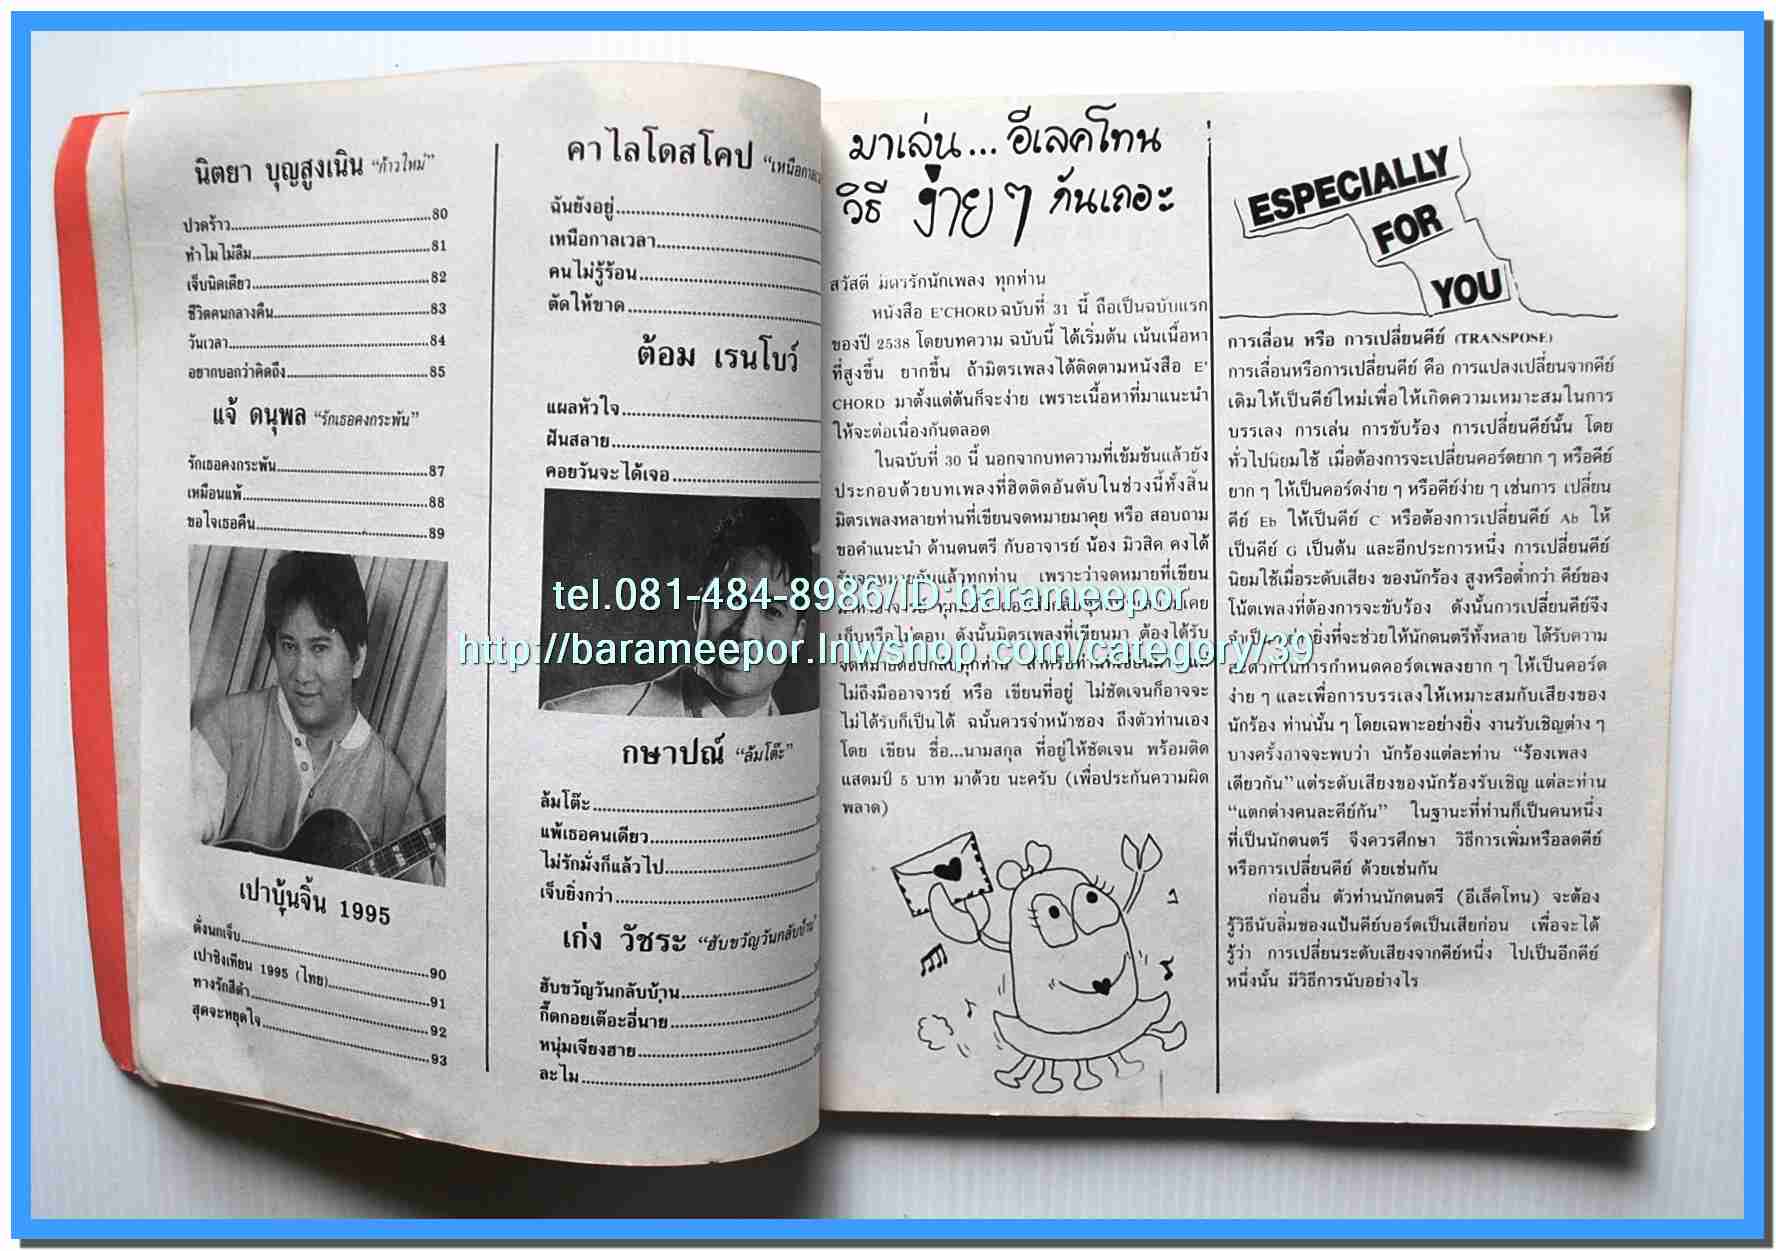 นิตยา บุญสูงเนิน "ก้าวใหม่"
ปวดร้าว....80
ทำไมไม่ลืม....81
เจ็บนิดเดียว....82
ชีวิตคนกลางคืน....83
วันเวลา....84
อยากบอกว่าคิดถึง....85
แจ้ ดนุพล "รักเธอคงกระพัน"
รักเธอคงกระพัน....87
เหมือนแพ้....88
ขอใจเธอคืน....89
เปาบุ้นจิ้น 1995
ดั่งนกเจ็บ....90
เปาชิงเทียน 1995 (ไทย)....91
ทางรักสีดำ....92
สุดจะหยุดใจ....93
คาไลโดสโคป "เหนือกาลเว
ฉันยังอยู่....
เหนือกาลเวลา....
คนไม่รู้ร้อน....
ตัดให้ขาด....
ต้อม เรนโบว์
แผลหัวใจ....
ฝันสลาย....
คอยวันจะได้เจอ....
กษาปณ์ "ล้มโต๊ะ"
ล้มโต๊ะ....
แพ้เธอคนเดียว....
ไม่รักมั่งก็แล้วไป....
เจ็บยิ่งกว่า....
เก่ง วัชระ "ฮับขวัญวันกลับบ้าน"
ฮับขวัญวันกลับบ้าน....
กี๊ดกอยเต๊อะอี่นาย....
หนุ่มเจียงฮาย....
ละไม....
มาเล่น... อีเลคโทน
วิธี ง่ายๆ กันเถอะ
สวัสดี มิตรรักนักเพลง ทุกท่าน
หนังสือ E'CHORD ฉบับที่ 31 นี้ ถือเป็นฉบับแรก
ของปี 2538 โดยบทความ ฉบับนี้ ได้เริ่มต้น เน้นเนื้อหา
ที่สูงขึ้น ยากขึ้น ถ้ามิตรเพลงได้ติดตามหนังสือ E'
CHORD มาตั้งแต่ต้นก็จะง่าย เพราะเนื้อหาที่มาแนะนำ
ให้จะต่อเนื่องกันตลอด
ในฉบับที่ 30 นี้ นอกจากบทความที่เข้มข้นแล้วยัง
ประกอบด้วยบทเพลงที่ฮิตติดอันดับในช่วงนี้ทั้งสิ้น
มิตรเพลงหลายท่านที่เขียนจดหมายมาคุย หรือ สอบถาม
ขอคำแนะนำ ด้านดนตรี กับอาจารย์ น้อง มิวสิค คงได้
แล้วทุกท่าน เพราะว่าจดหมายที่เขียน
เคย
เก็บหรือไม่ตอบ ดังนั้นมิตรเพลงที่เขียนมา ต้องได้รับ
จดหมายตอบกลับทุกท่าน
ไม่ถึงมืออาจารย์ หรือ เขียนที่อยู่ ไม่ชัดเจนก็อาจจะ
ไม่ได้รับก็เป็นได้ ฉนั้นควรจ่าหน้าซอง ถึงตัวท่านเอง
โดย เขียน ชื่อ...นามสกุล ที่อยู่ให้ชัดเจน พร้อมติด
แสตมป์ 5 บาท มาด้วย นะครับ (เพื่อประกันความผิด
พลาด)
ESPECIALLY
FOR
YOU
การเลื่อน หรือ การเปลี่ยนคีย์ (TRANSPOSE)
การเลื่อนหรือการเปลี่ยนคีย์ คือ การแปลงเปลี่ยนจากคีย์
เดิมให้เป็นคีย์ใหม่เพื่อให้เกิดความเหมาะสมในการ
บรรเลง การเล่น การขับร้อง การเปลี่ยนคีย์นั้น โดย
ทั่วไปนิยมใช้ เมื่อต้องการจะเปลี่ยนคอร์ดยาก ๆ หรือคีย์
ยาก ๆ ให้เป็นคอร์ดง่าย ๆ หรือคีย์ง่าย ๆ เช่นการ เปลี่ยน
คีย์ Eb ให้เป็นคีย์ C หรือต้องการเปลี่ยนคีย์ Ab ให้
เป็นคีย์ G เป็นต้น และอีกประการหนึ่ง การเปลี่ยนคีย์
นิยมใช้เมื่อระดับเสียง ของนักร้อง สูงหรือต่ำกว่า คีย์ของ
โน้ตเพลงที่ต้องการจะขับร้อง ดังนั้นการเปลี่ยนคีย์จึง
จำเป็นอย่างยิ่งที่จะช่วยให้นักดนตรีทั้งหลาย ได้รับความ
สะดวกในการกำหนดคอร์ดเพลงยาก ๆ ให้เป็นคอร์ด
ง่าย ๆ และเพื่อการบรรเลงให้เหมาะสมกับเสียงของ
นักร้อง ท่านนั้น ๆ โดยเฉพาะอย่างยิ่ง งานรับเชิญต่าง ๆ
บางครั้งอาจจะพบว่า นักร้องแต่ละท่าน "ร้องเพลง
เดียวกัน" แต่ระดับเสียงของนักร้องรับเชิญ แต่ละท่าน
"แตกต่างคนละคีย์กัน" ในฐานะที่ท่านก็เป็นคนหนึ่ง
ที่เป็นนักดนตรี จึงควรศึกษา วิธีการเพิ่มหรือลดคีย์
หรือการเปลี่ยนคีย์ ด้วยเช่นกัน
ก่อนอื่น ตัวท่านนักดนตรี (อีเล็คโทน) จะต้อง
รู้วิธีนับลิ่มของแป้นคีย์บอร์ดเป็นเสียก่อน เพื่อจะได้
รู้ว่า การเปลี่ยนระดับเสียงจากคีย์หนึ่ง ไปเป็นอีกคีย์
หนึ่งนั้น มีวิธีการนับอย่างไร
tel.081-484-8986/ID:barameepor
http://barameepor.lnwshop.com/category/39